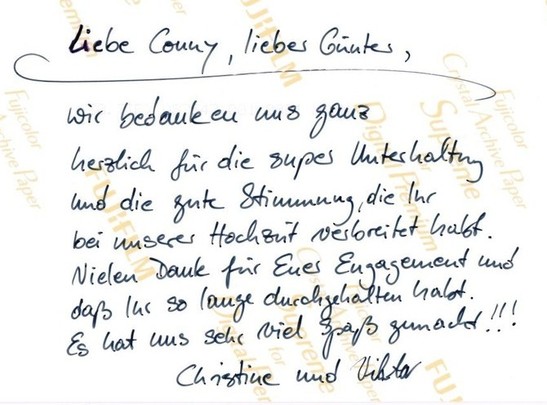 Liebe Conny, lieber Günter,
wir bedanken uns ganz
herzlich für die super Unterhaltung
und die gute Stimmung, die Ihr
bei unserer Hochzeit verbreitet habt.
Vielen Dank für Euer Engagement und
daß Ihr so lange durchgehalten habt.
Es hat uns sehr viel Spaß gemacht!!!
Christine und Viktor
FUJIFILM
Fujicolor
Crystal Archive Paper
Supreme
Digital Paper
for
Premium